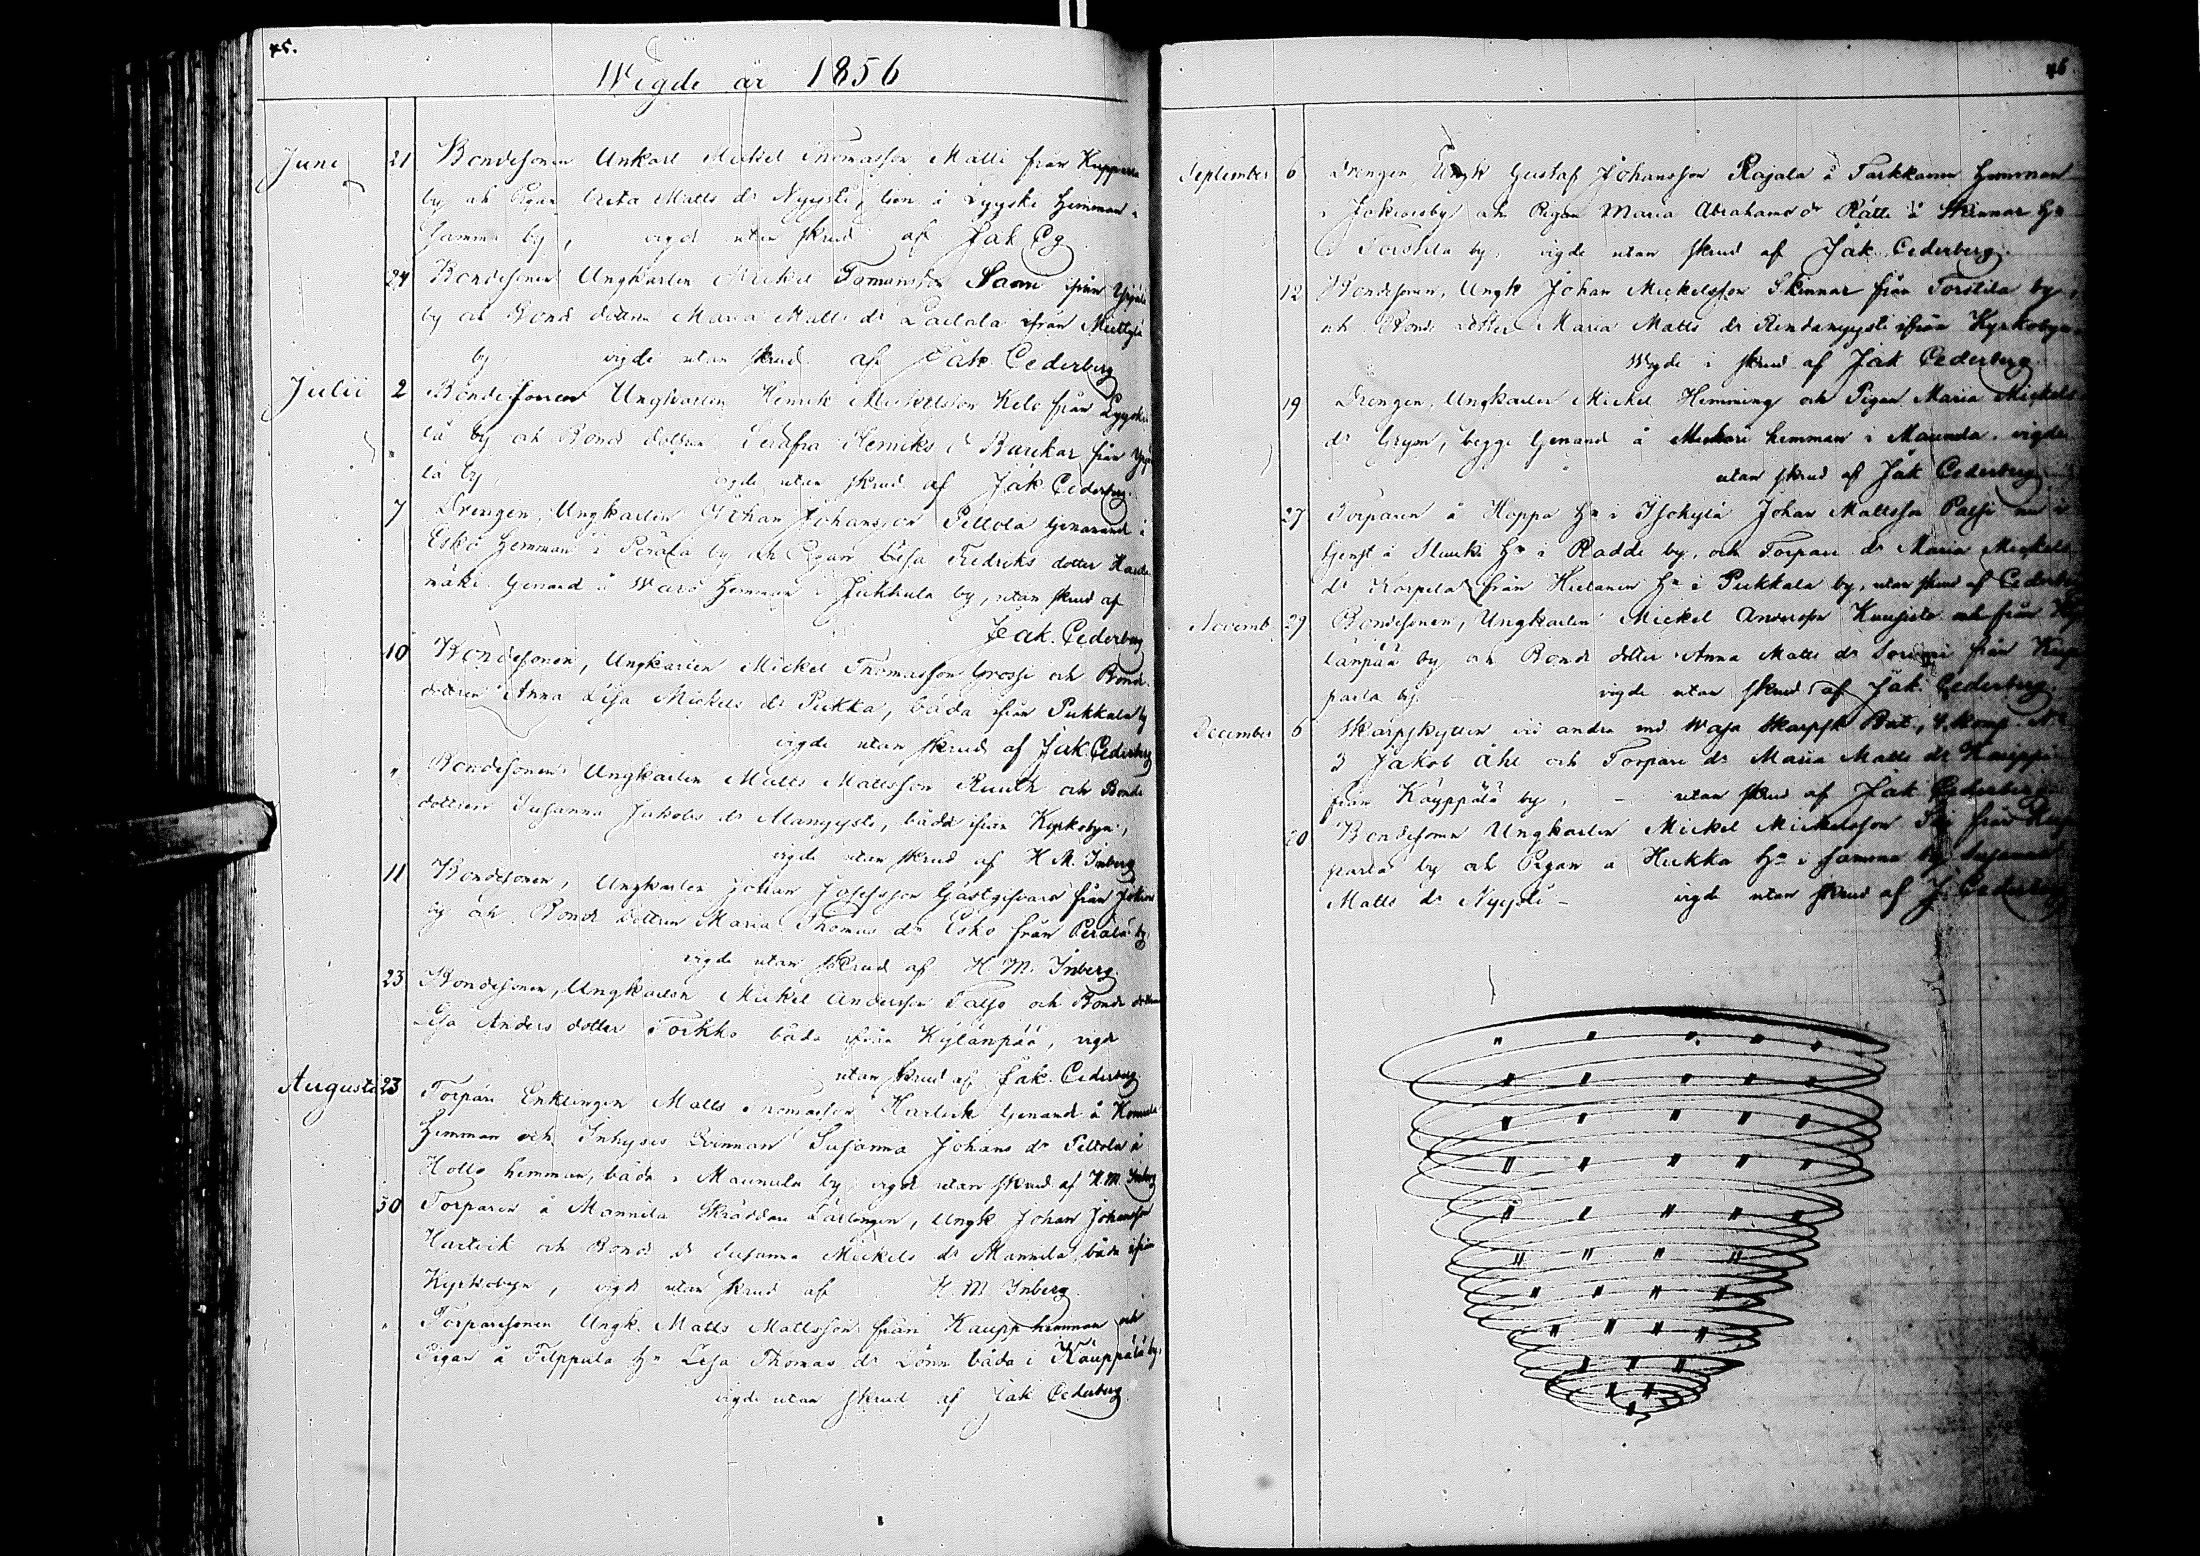 45.
Wigde år 1856
Juni 21 Bondesonen Unkarl Mickel Thomasson Matti från Kupparla
by och Pigan Brita Matts dr Nyysti, från å Lyyski Hemman i
samma by, vigde utan skrud af Jak Cg
24 Bondesonen Ungkarlen Mickel Tomasson Saari ifrån Yrjälä
by och Bonde dottren Maria Matts dr Lallala ifrån Mellysä
by vigde utan skrud af Jak Cederberg
Julii 2 Bondesonen Ungkarlen Henrik Mickelsson Kelo från Lyyski
lä by och Bonde dottren Serafia Henriks d Baukar från Yrjä
lä by, vigde utan skrud af Jak Cederberg.
7 Drengen, Ungkarlen Johan Johansson Pellola tjenand å
Esko Hemman i Perälä by och Pigan Lisa Fredriks dotter
mäki tjenand å Waro Hemman i Jukkula by, utan skrud af
Jak. Cederberg
10 Bondesonen, Ungkarlen Mickel Thomasson Grossi och Bonde
dottren Anna Lisa Mickels dr Pukka, båda ifrån Pukkala by
vigde utan skrud af Jak Cederberg
" Bondesonen Ungkarlen Matts Mattsson Ruuth och Bonde
dottren Susanna Jakobs dr Mangysti, båda ifrån Kyrkobyn,
vigde utan skrud af H. M. Inberg
11 Bondesonen, Ungkarlen Johan Josefsson Gästgifvars från Jokais
by och Bonde dottren Maria Thomas dr Esko från Perälä by,
vigde utan skrud af H. M. Inberg.
23 Bondesonen, Ungkarlen Mickel Andersson Talso och Bonde dottren
Lisa Anders dotter Torkko båda ifrån Kylänpää, vigde
utan skrud af Jak. Cederberg
Augusti 23 Torpare Enklingen Matts Thomasson Harlick tjenand å
Hemman och Inhyses Qvinnan Susanna Johans dr Pellola å
Hollo hemman, båda i Maunula by, vigde utan skrud af H. M. Inberg
30 Torparen å Mannila Skräddare Lärlingen, Ungk Johan Johansson
Harlick och Bonde d Susanna Mickels dr Mannila, båda ifrån
Kyrkobyn, vigde utan skrud af H M Inberg.
" Torparesonen Ungk. Matts Mattsson från Kaupp hemman och
Pigan å Filppula Hn Lisa Thomas dr Lönn båda i Käuppälä by,
vigde utan skrud af Jak Cederberg.
46
September 6 Drengen, Ungk Gustaf Johansson Rajala å Tarkkanen Hemman
i Jokiaisby och Pigan Maria Abrahams dr Rätti å Skinnar Hn
i Torstila by, vigde utan skrud af Jak. Cederberg.
12 Bondesonen, Ungk Johan Mickelsson Skinnar från Torstila by
och Bonde dotter Maria Matts dr Rindamyysti ifrån Kyrkobyn
Wigde i skrud af Jak Cederberg
19 Drengen, Ungkarlen Mickel Hemming och Pigan Maria Mickels
dr Grym, begge tjenand å Mickari hemman i Maunula. vigde
utan skrud af Jak Cederberg
27 Torparen å Hoppa Hn i Isokylä Johan Mattsson Palsi nu i
tjenst å Sluuki Hn i Raddi by, och Torpare dr Maria Mickels
dr Korpela från Kielanen Hn i Pukkala by, utan skrud af Cederberg
Novemb. 29 Bondesonen, Ungkarlen Mickel Andersson från Ky
länpää by och Bonde dotter Anna Matts dr Sorinni från Kup
parla by. vigde utan skrud af Jak. Cederberg
December 6 Skarpskytten vid andra ind. Wasa Skarpsk Bat., 4. komp. No
3 Jakob Åhl och Torpare dr Maria Matts dr Kauppi
från Käyppälä by, - utan skrud af Jak Cederberg
20 Bondesonen Ungkarlen Mickel Mickelsson från Kup
parla by och Pigan å Hukka Hn i samma by Susanna
Matts dr Nyysti - vigde utan skrud af J. Cederberg